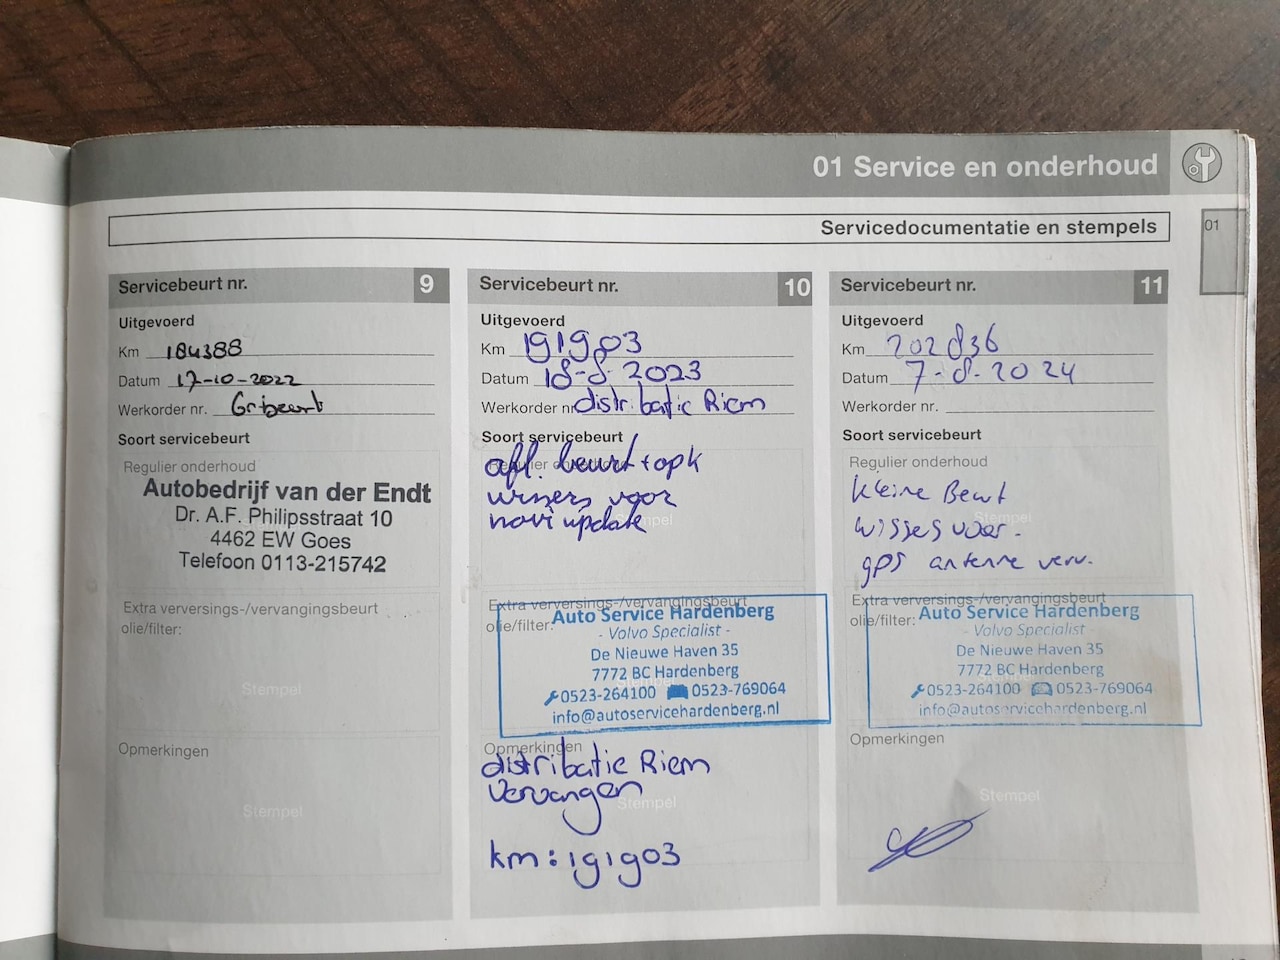 01 Service en onderhoud
Servicedocumentatie en stempels
01
Servicebeurt nr. 9
Uitgevoerd
Km 184388
Datum 17-10-2022
Werkorder nr. Gr beurt
Soort servicebeurt
Regulier onderhoud
Autobedrijf van der Endt
Dr. A.F. Philipsstraat 10
4462 EW Goes
Telefoon 0113-215742
Extra verversings-/vervangingsbeurt
olie/filter:
Stempel
Opmerkingen
Stempel
Servicebeurt nr. 10
Uitgevoerd
Km 191903
Datum 18-8-2023
Werkorder nr. distribatie Riem
Soort servicebeurt
Regulier onderhoud
afl. beurt + apk
wissers voor
navi update
Stempel
Extra verversings-/vervangingsbeurt
olie/filter:
Auto Service Hardenberg
- Volvo Specialist -
De Nieuwe Haven 35
7772 BC Hardenberg
0523-264100 0523-769064
info@autoservicehardenberg.nl
Opmerkingen
distribatie Riem
vervangen
Stempel
km: 191903
Servicebeurt nr. 11
Uitgevoerd
Km 202836
Datum 7-8-2024
Werkorder nr.
Soort servicebeurt
Regulier onderhoud
Kleine Beurt
Stempel
wissers voor.
gps antenne verv.
Extra verversings-/vervangingsbeurt
olie/filter:
Auto Service Hardenberg
- Volvo Specialist -
De Nieuwe Haven 35
7772 BC Hardenberg
0523-264100 0523-769064
info@autoservicehardenberg.nl
Opmerkingen
Stempel